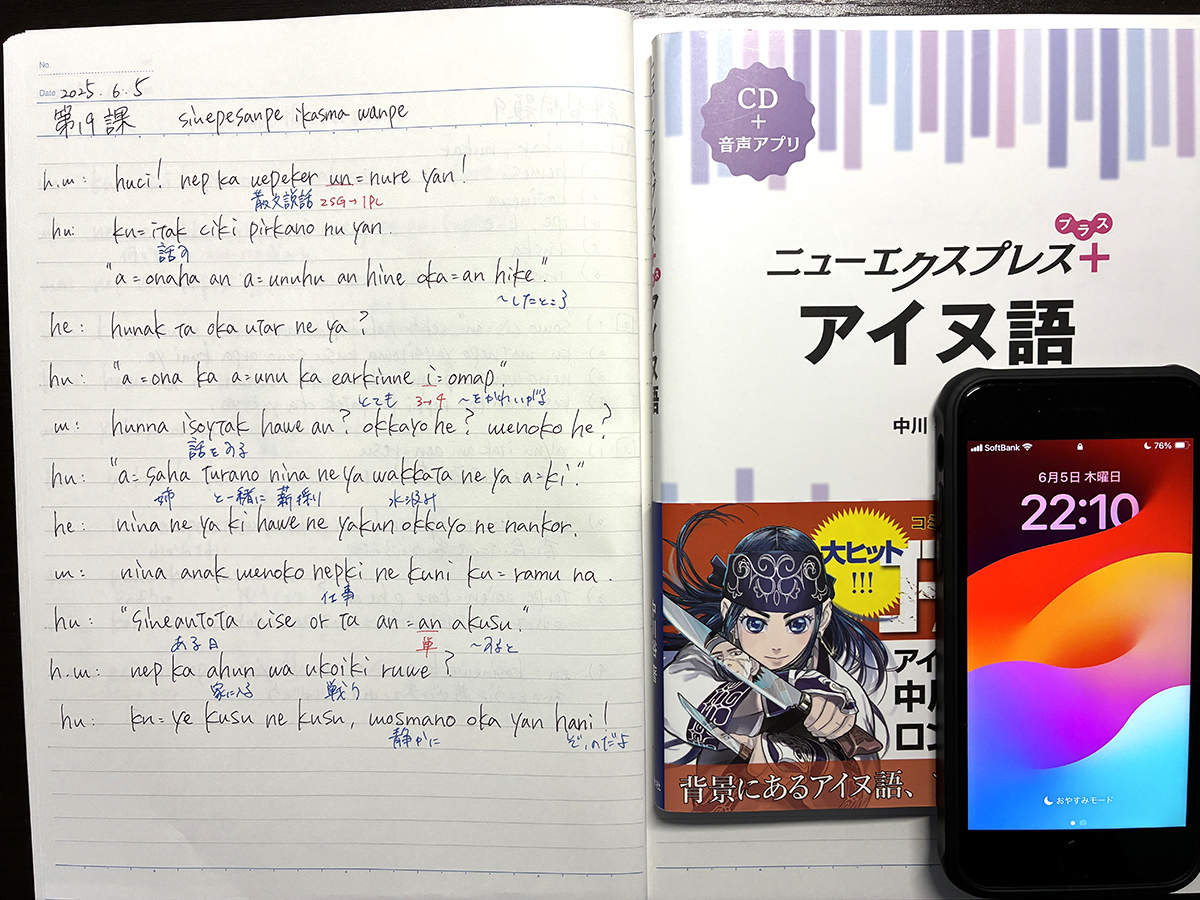 No.
Date 2025. 6. 5
第19課 sinepesanpe ikasma wanpe
h.m: huci! nep ka uepeker un=nure yan!
散文説話 2SG→1PL
hu: ku=itak ciki pirkano nu yan.
話す
"a=onaha an a=unuhu an hine oka=an hike"
~したところ
he: hunak ta oka utar ne ya?
hu: "a=ona ka a=unu ka earkinne i=omap."
とても 3→4 ~をかわいがる
m: hunna isoytak hawe an? okkayo he? menoko he?
話をする
hu: "a=saha turano nina ne ya wakkata ne ya a=ki."
姉 と一緒に 薪採り 水汲み
he: nina ne ya ki hawe ne yakun okkayo ne nankor.
m: nina anak menoko nepki ne kuni ku=ramu na.
仕事
hu: "Sineantota cise or ta an=an akusu."
ある日 単 ~すると
h.m: nep ka ahun wa ukoiki ruwe?
家に入る 戦う
hu: ku=ye kusu ne kusu, mosmano oka yan hani!
静かに ぞ,のだよ
CD
+
音声アプリ
プラス
ニューエクスプレス+
アイヌ語
中川
大ヒット
!!!
アイ
中川
ロン
背景にあるアイヌ語、
SoftBank 76%
6月5日 木曜日
22:10
おやすみモード